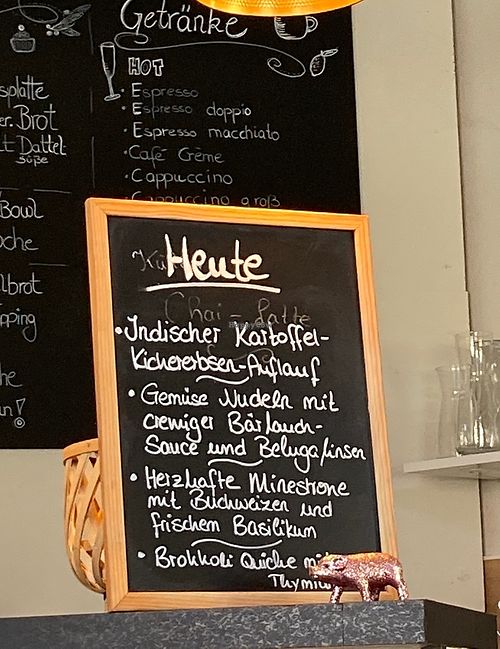 Getränke
HOT
• Espresso
• Espresso doppio
• Espresso macchiato
• Café Crème
• Cappuccino
• Cappuccino groß
splatte
er. Brot
t Dattel
süße
Bowl
oche
lbrot
pping
he
n!
Heute
Chai - Latte
• Indischer Kartoffel-
Kichererbsen-Auflauf
• Gemüse Nudeln mit
cremiger Bärlauch-
Sauce und Belugalinsen
• Herzhafte Minestrone
mit Buchweizen und
frischem Basilikum
• Brokkoli Quiche mi
Thymia